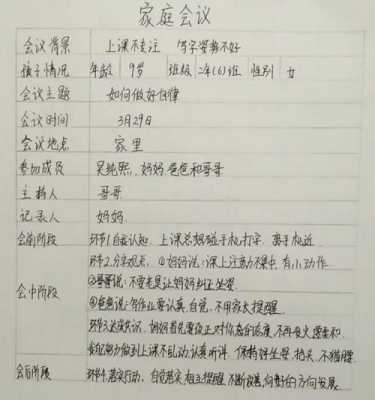 家庭会议
会议背景 上课不专注 写字姿势不好
孩子情况 年龄 9岁 班级 2年(6)班 性别 女
会议主题 如何做好自律
会议时间 3月29日
会议地点 家里
参加成员 吴纯熙、妈妈、爸爸和哥哥
主持人 哥哥
记录人 妈妈
会前阶段 环节1.自我认知. 上课总 手机打字. 离手机近
环节2.分享观点. ①妈妈说:课上注意力不集中,有小动作
会中阶段 ②哥哥说:不要老是让妈妈纠正坐姿
③爸爸说:写作业要认真,自觉,不用家长提醒
环节3.达成共识. 妈妈首先要改正对你急的态度,不再发火要柔和
做到上课不乱动,认真听讲. 保持好坐姿,抬头,不
会后阶段 环节4.落实行动. 自觉落实,相互提醒,不断改善,向好的方向发展.